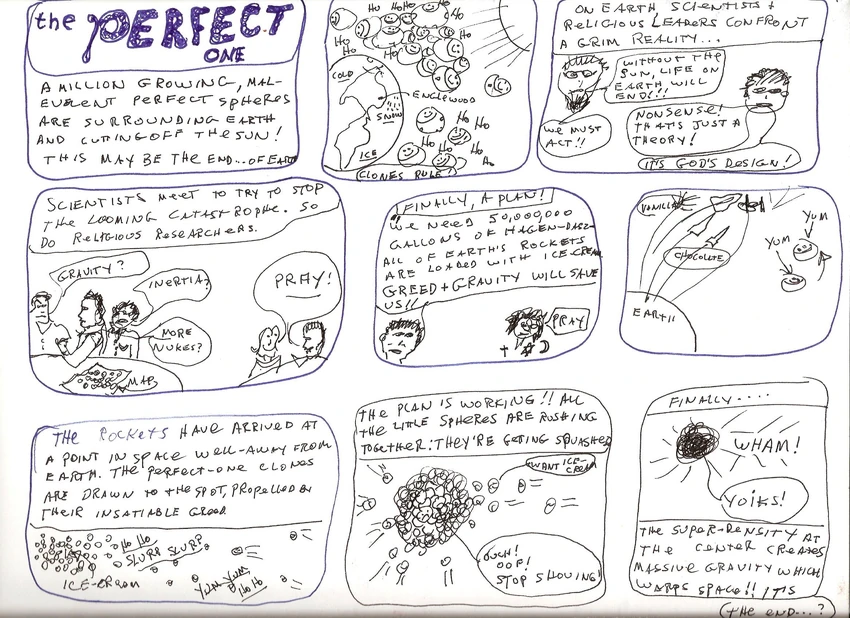 the PERFECT
ONE
A MILLION GROWING, MAL-
EVOLENT PERFECT SPHERES
ARE SURROUNDING EARTH
AND CUTING OFF THE SUN!
THIS MAY BE THE END... OF EARTH
Ho Ho Ho Ho
Ho Ho
Ho Ho
Ho
Ho
COLD
ENGLEWOOD
SNOW
ICE
Ho
Ho
Ho
Ho
CLONES RULE!
ON EARTH SCIENTISTS +
RELIGIOUS LEADERS CONFRONT
A GRIM REALITY...
WITHOUT THE
SUN, LIFE ON
EARTH WILL
END!!!
WE MUST
ACT!!
NONSENSE!
THAT'S JUST A
THEORY!
IT'S GOD'S DESIGN!
SCIENTISTS MEET TO TRY TO STOP
THE LOOMING CATASTROPHE. SO
DO RELIGIOUS RESEARCHERS.
GRAVITY?
INERTIA?
MORE
NUKES?
PRAY!
MAP
FINALLY, A PLAN!
WE NEED 50,000,000
GALLONS OF HAGEN-DASZ
ALL OF EARTH'S ROCKETS
ARE LOADED WITH ICE-CREAM.
GREED + GRAVITY WILL SAVE
US!!
PRAY
VANILLA
CHOCOLATE
YUM
YUM
EARTH
THE ROCKETS HAVE ARRIVED AT
A POINT IN SPACE WELL-AWAY FROM
EARTH. THE PERFECT-ONE CLONES
ARE DRAWN TO THE SPOT, PROPELLED BY
THEIR INSATIABLE GREED
HO HO
SLURP SLURP
ICE-CREAM
YUM-YUM
HO HO
THE PLAN IS WORKING!! ALL
THE LITTLE SPHERES ARE RUSHING
TOGETHER. THEY'RE GETING SQUASHED
WANT ICE-
CREAM
OUCH!
OOF!
STOP SHOVING!
FINALLY....
WHAM!
YOIKS!
THE SUPER-DENSITY AT
THE CENTER CREATES
MASSIVE GRAVITY WHICH
WARPS SPACE!! IT'S
THE END...?